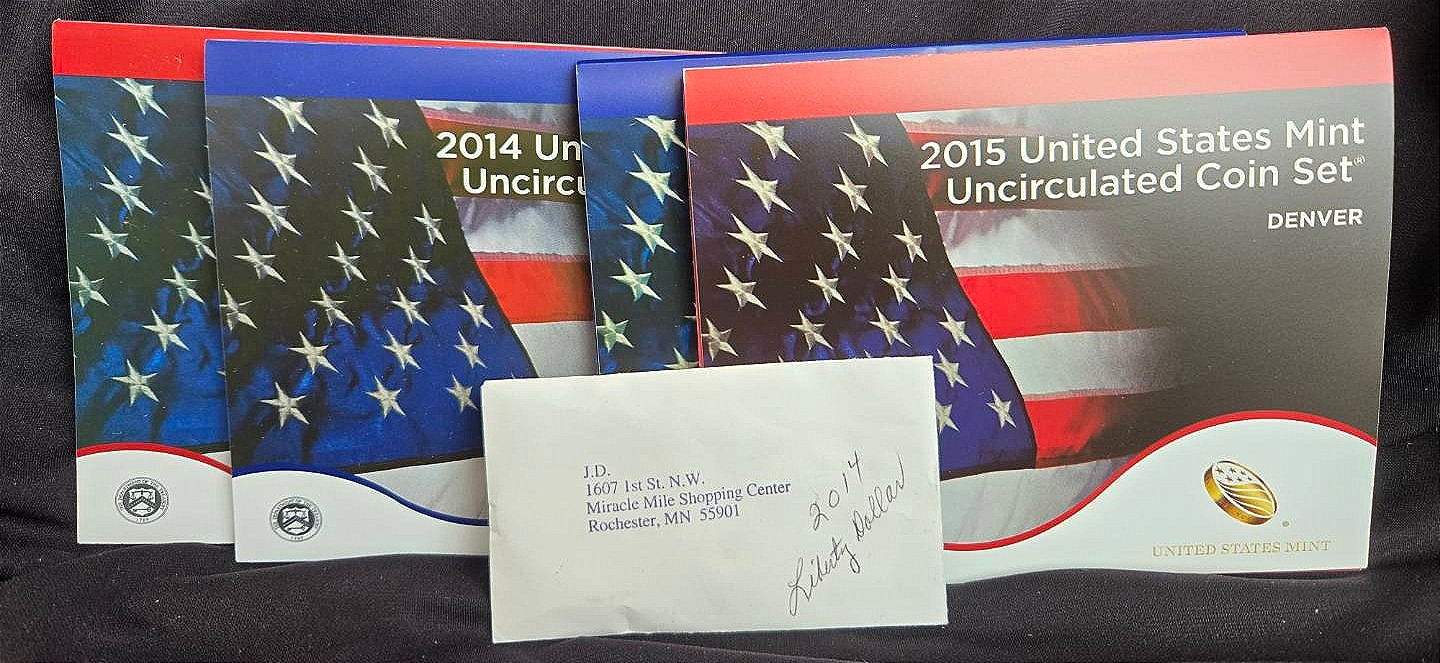 2014 Un
Uncircu
2015 United States Mint
Uncirculated Coin Set®
DENVER
UNITED STATES MINT
J.D.
1607 1st St. N.W.
Miracle Mile Shopping Center
Rochester, MN 55901
2014
Liberty Dollar